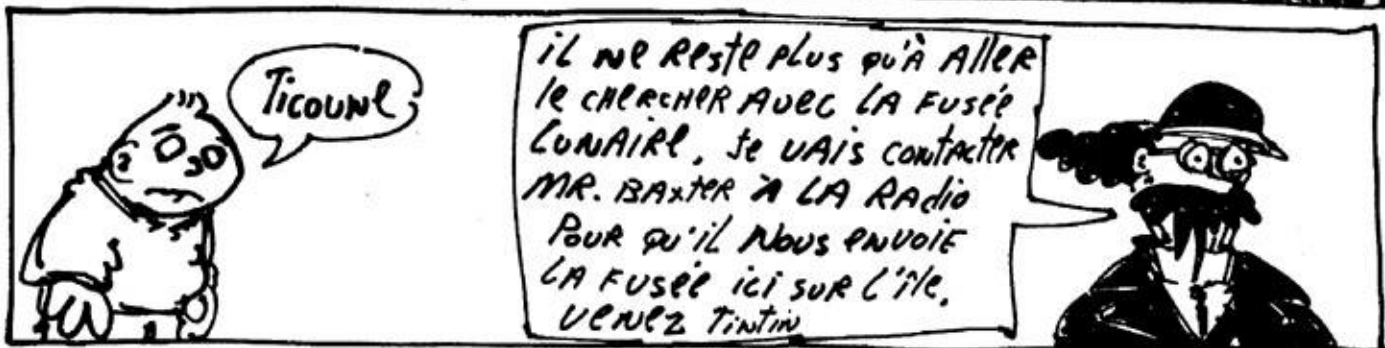 Ticoune
il ne reste plus qu'à aller
le chercher avec la fusée
lunaire, je vais contacter
Mr. Baxter à la radio
pour qu'il nous envoie
la fusée ici sur l'île.
venez Tintin